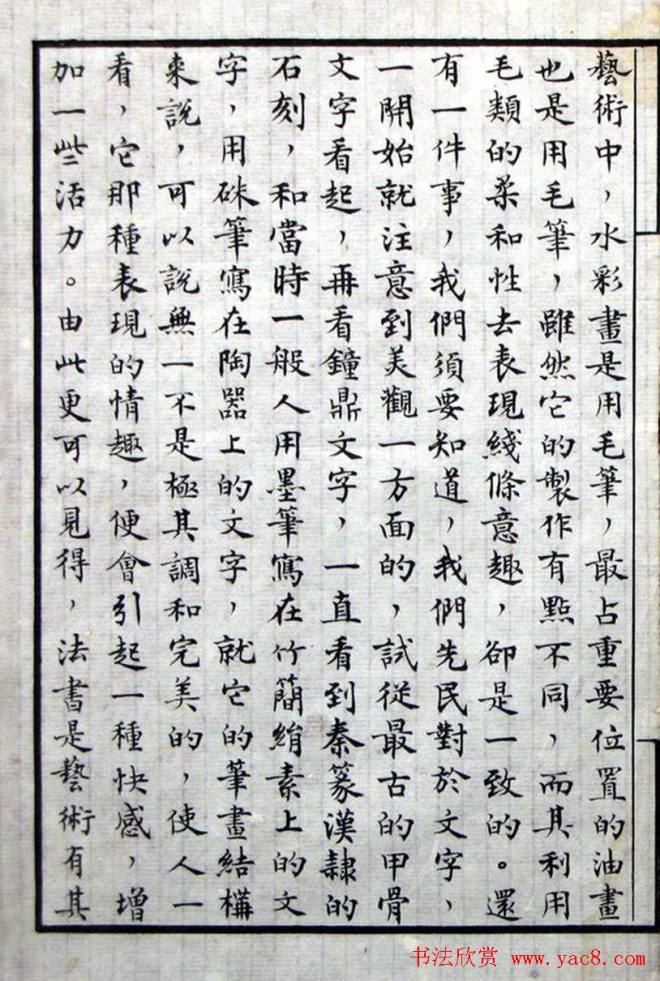 藝術中，水彩畫是用毛筆，最占重要位置的油畫
也是用毛筆，雖然它的製作有點不同，而其利用
毛類的柔和性去表現綫條意趣，卻是一致的。還
有一件事，我們須要知道，我們先民對於文字，
一開始就注意到美觀一方面的，試從最古的甲骨
文字看起，再看鐘鼎文字，一直看到秦篆漢隸的
石刻，和當時一般人用墨筆寫在竹簡絹素上的文
字，用硃筆寫在陶器上的文字，就它的筆畫結構
來說，可以說無一不是極其調和完美的，使人一
看，它那種表現的情趣，便會引起一種快感，增
加一些活力。由此更可以見得，法書是藝術有其
书法欣赏 www.yac8.com